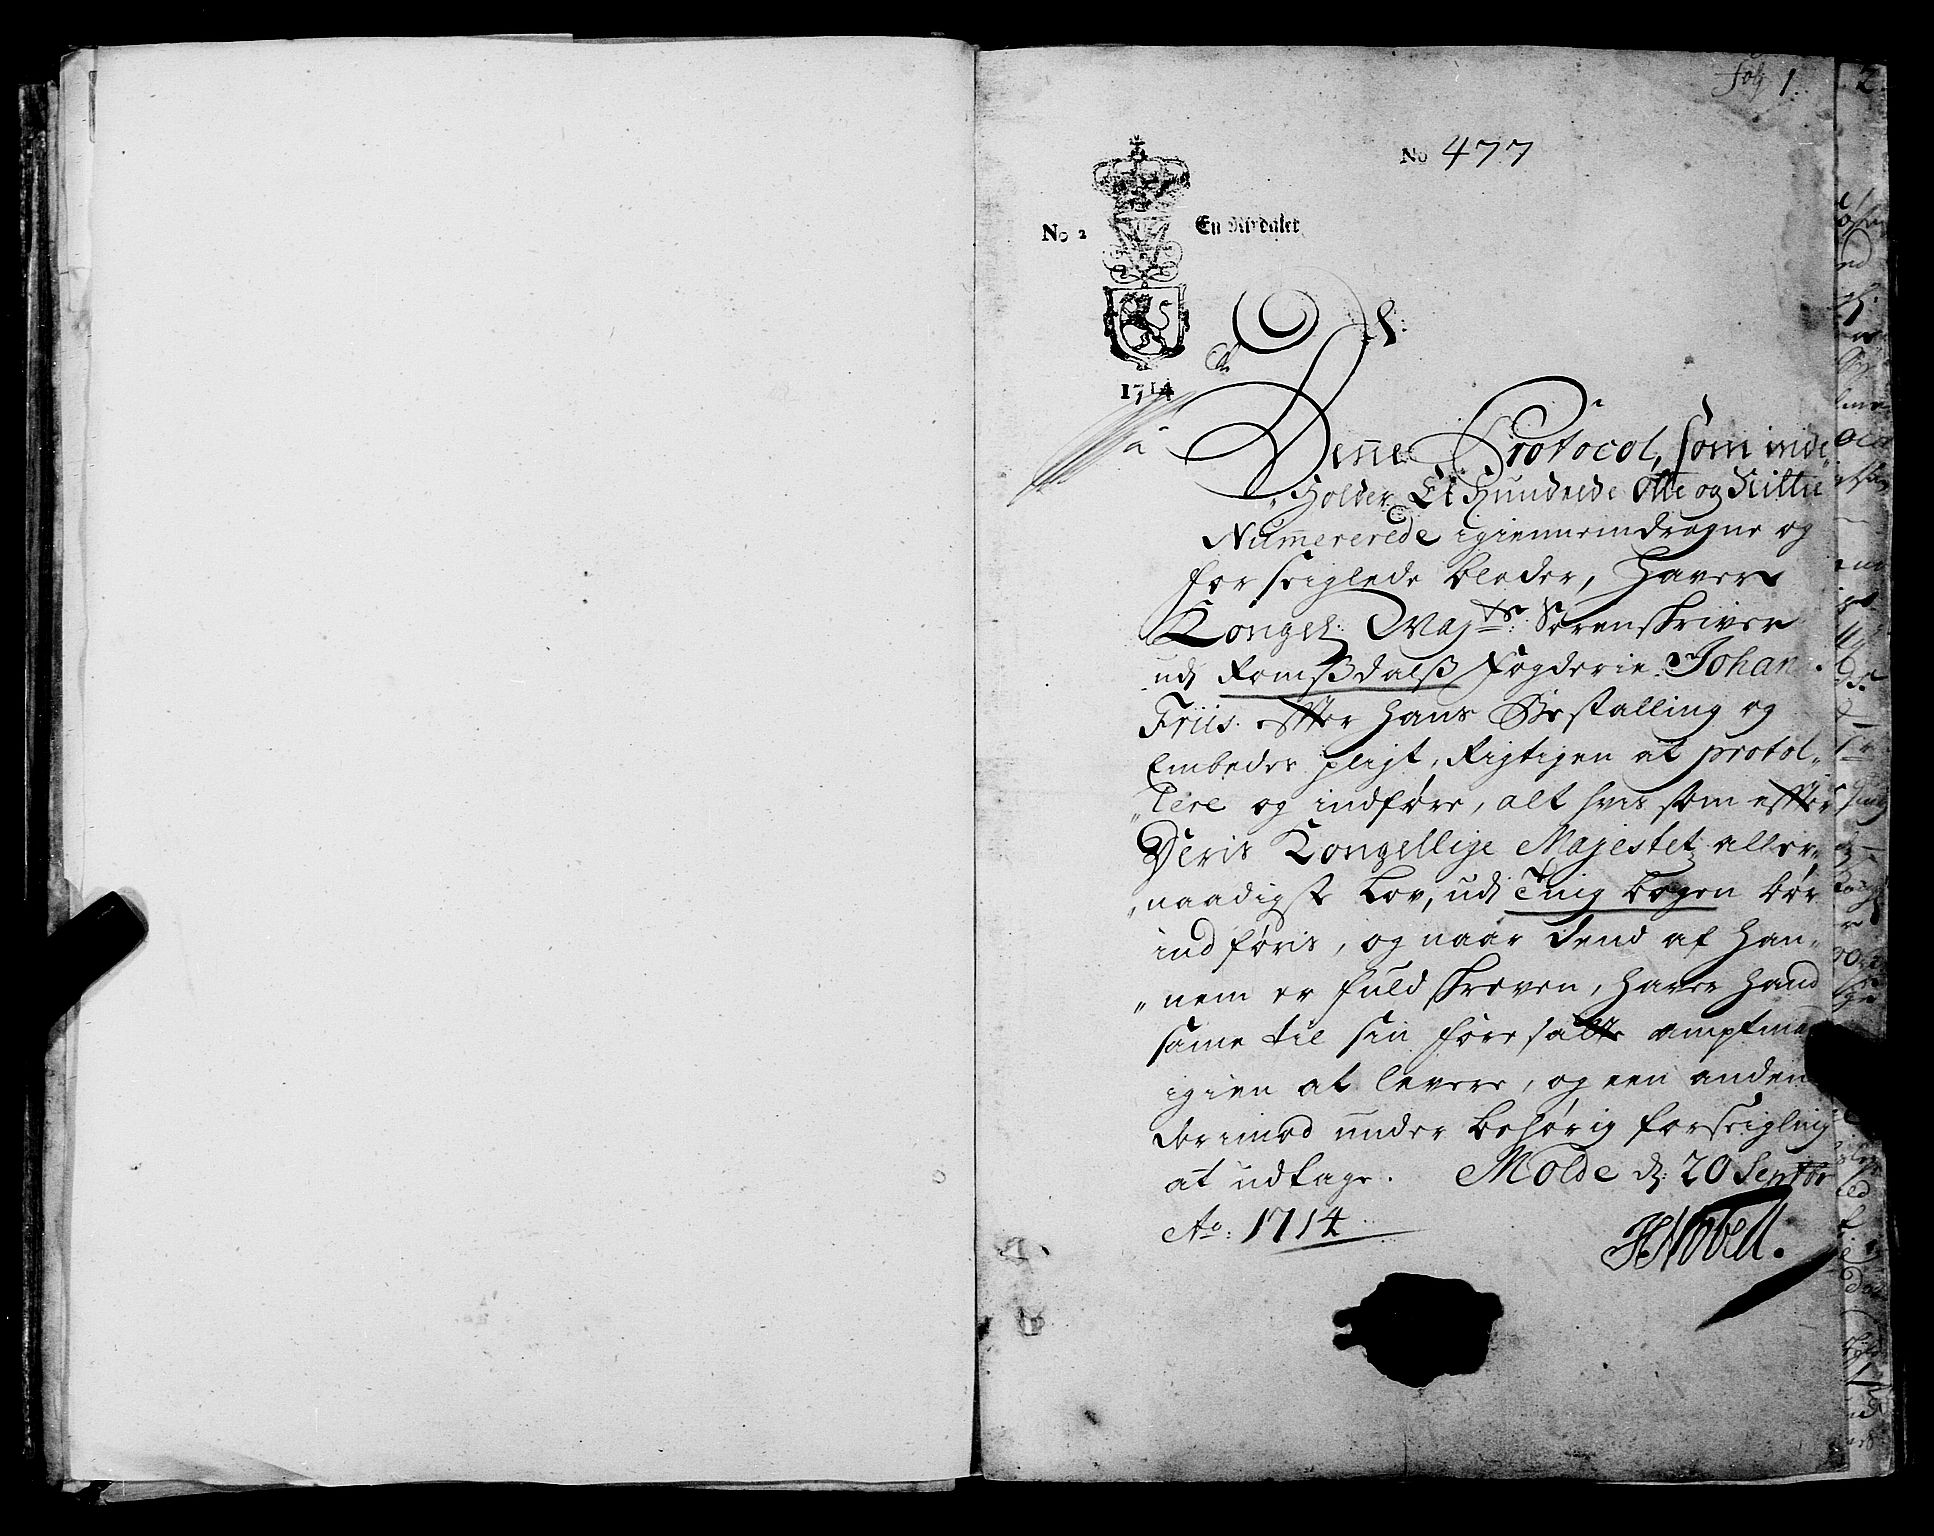 fol 1.
2.
No 477
No 2
En Rixdaler
1714
Denne Protocol, som inde
"holder Et Hundrede Otte og
Numererede igiennemdragne og
forseiglede blader, haver
Kongel. Mayts: Sorenskriver
udj Romsdalss Fogderie Johan
Friis. effter hans Bestalling og
Embedes pligt, Rigtigen at protol-
"lere og indføre, alt hvis som effter
Deris Kongellige Majestet aller-
"naadigste Lov, udj Ting bogen bør
indføris, og naar dend af han-
"nem er fuldskreven, haver hand
same til sin foresatte amptma
igien at levere, og een anden
derimod under behørig forseigling
at udtage. Molde d: 20 Septbr
Ao: 1714
HNobell.